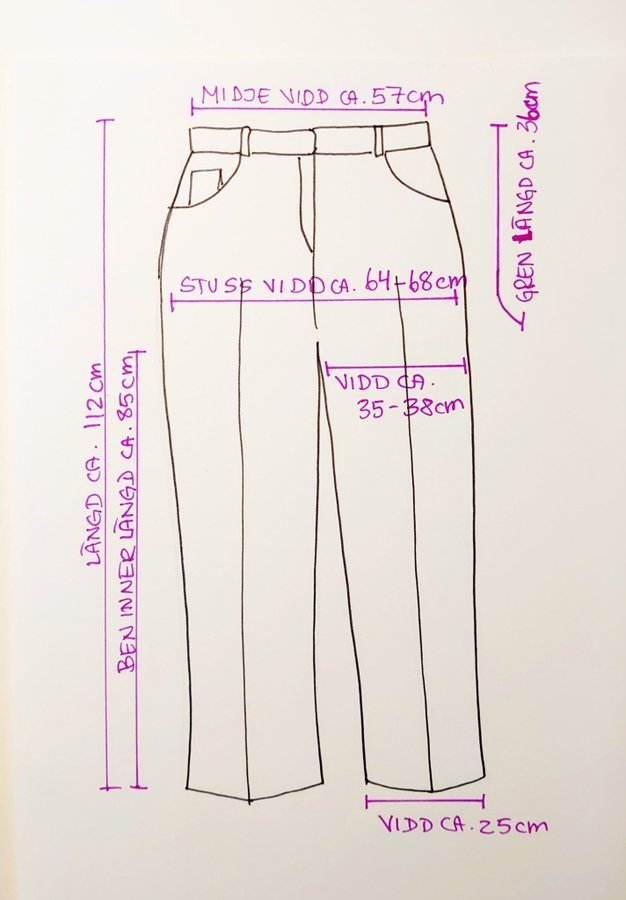 MIDJE VIDD CA. 57cm
GREN LÄNGD CA. 36cm
STUSS VIDD CA. 64-68cm
VIDD CA.
35-38cm
LÄNGD CA. 112cm
BEN INNER LÄNGD CA. 85cm
VIDD CA. 25cm